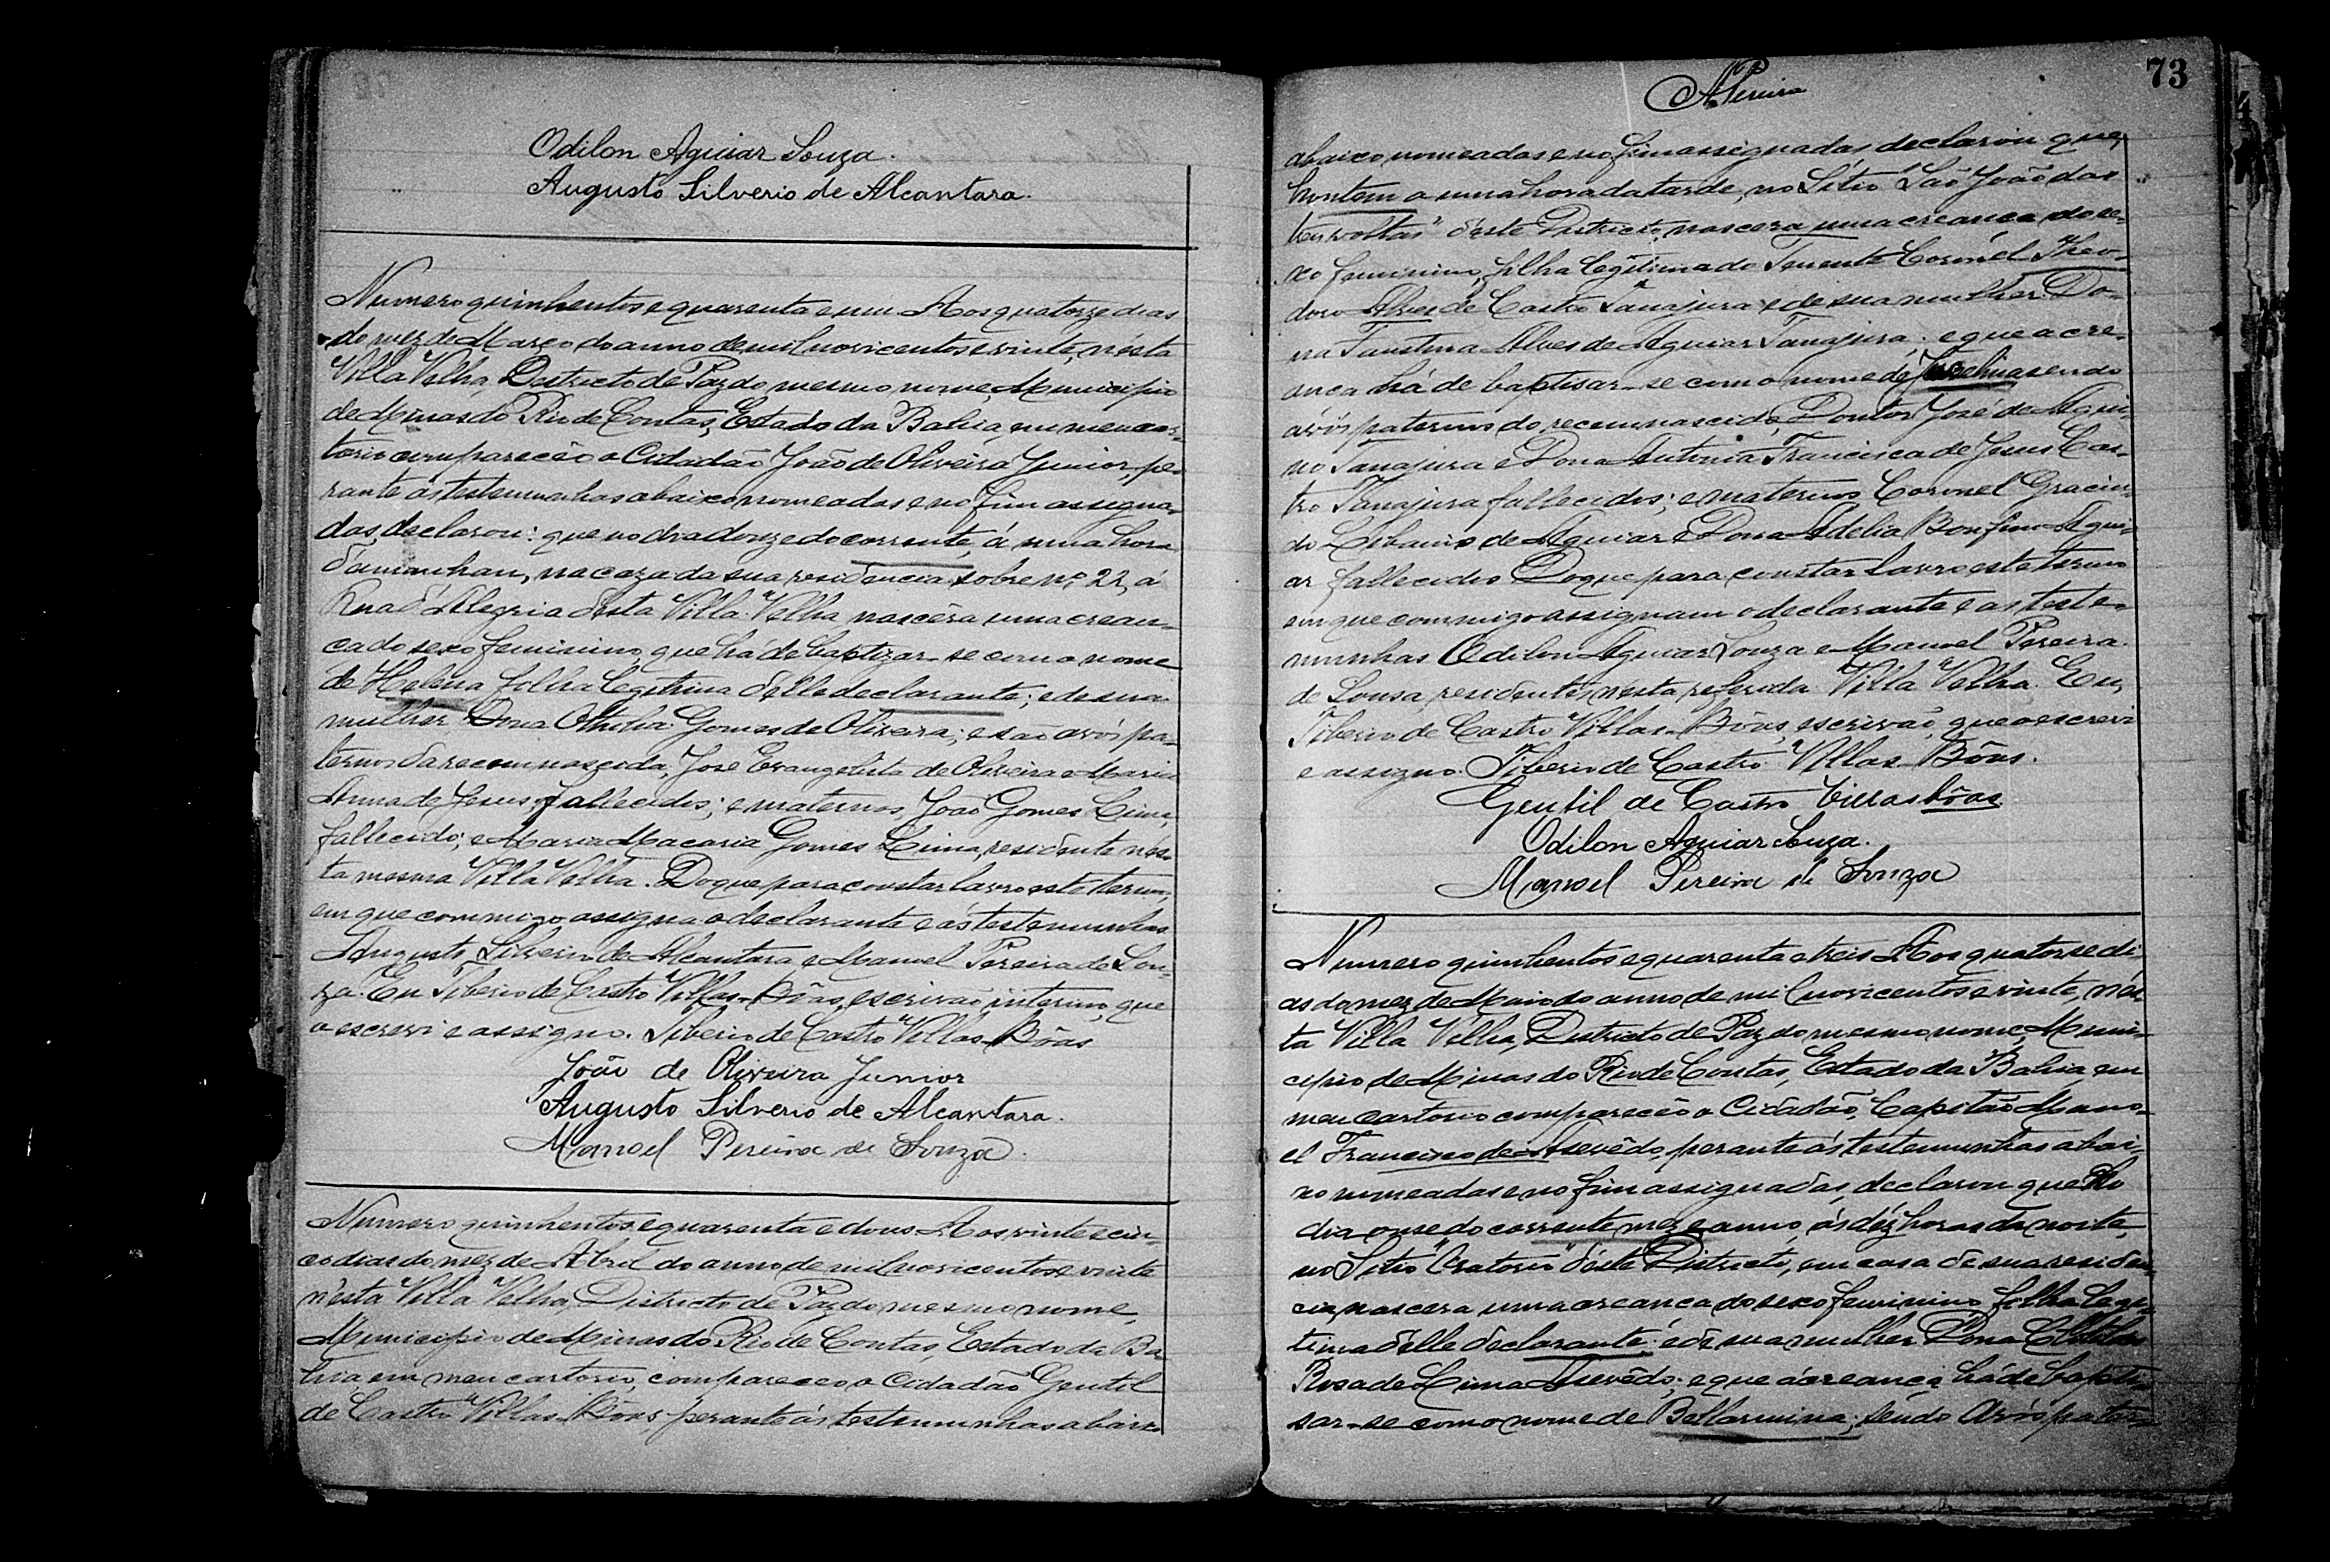 Odilon Aguiar Souza.
Augusto Silverio de Alcantara.
Numero quinhentos e quarenta e um Aos quatorze dias
do mez de Março do anno de mil novicentos e vinte, nésta
Villa Velha, Destricto de Paz do mesmo nome, Municipio
de Minas do Rio de Contas, Estado da Bahia, em meu car-
torio compareceo o Cidadão João de Oliveira Junior, pe-
rante ás testemunhas abaixo nomeadas e no fim assigna-
das, declarou: que no dia doze do corrente, á uma hora
da manhan, na caza da sua residencia, sobre nº 22, á
Rua d'Alegria désta Villa Velha nascêra uma crean-
ça do sexo feminino, que há de baptizar-se com o nome
de Helena filha legitima d'elle declarante; e de sua
mulher Dona Othilia Gomes de Oliveira; e são avós pa-
ternos da recemnascida, José Evangelista de Oliveira e Maria
Anna de Jesus, fallecidos; e maternos, João Gomes Lima,
fallecido; e Maria Macaria Gomes Lima, residente nés-
ta mesma Villa Velha. Do que para constar lavro este termo,
em que commigo assigna o declarante e ás testemunhas
Augusto Silverio de Alcantara e Manoel Pereira de Sou-
za. Eu Tiberio de Castro Villas-Bôas, escrivão interino, que
o escrevi e assigno. Tiberio de Castro Villas-Bôas
João de Oliveira Junior
Augusto Silverio de Alcantara.
Manoel Pereira de Souza.
Numero quinhentos e quarenta e dous Aos vinte e cin-
co dias do mez de Abril do anno de mil novicentos e vinte
n'ésta Villa Velha, Districto de Paz do mesmo nome,
Municipio de Minas do Rio de Contas, Estado da Ba-
hia, em meu cartorio, compareceo o Cidadão Gentil
de Castro Villas-Bôas, perante ás testemunhas abaixo
73
APereira
abaixo nomeadas e no fim assignadas declarou que,
hontem a uma hora da tarde, no Sitio "São João das
tres voltas" d'este Districto, nascera uma creança do se-
xo feminino, filha legitima do Tenente Coronel Theo-
doro Alves de Castro Tanajura e de sua mulher Do-
na Faustina Alves de Aguiar Tanajura; e que a cre-
ança há de baptisar-se com o nome de sendo
avós paternos do recemnascido, Doutor José de Aqui-
no Tanajura e Dona Antonia Francisca de Jesus Cas-
tro Tanajura fallecidos; e maternos Coronel Gracin-
do Libanio de Aguiar e Dona Adelia Bonfim Agui-
ar fallecidos Do que para constar lavro este termo
em que commigo assignam o declarante e as teste-
munhas Odilon Aguiar Souza e Manoel Pereira
de Sousa, residentes nésta referida Villa Velha. Eu,
Tiberio de Castro Villas-Bôas, escrivão, que o escrevi
e assigno. Tiberio de Castro Villas-Bôas.
Gentil de Castro Villasbôas
Odilon Aguiar Souza.
Manoel Pereira de Souza
Numero quinhentos e quarenta e treis Aos quatorse di-
as do mez de Maio do anno de mil novicentos e vinte, nés-
ta Villa Velha, Districto de Paz do mesmo nome, Muni-
cipio de Minas do Rio de Contas, Estado da Bahia, em
meu cartorio compareceo o Cidadão, Capitão Mano-
el Francisco de Asevêdo, perante ás testemunhas abai-
xo nomeadas e no fim assignadas, declarou que no
dia onse do corrente mez e anno, ás déz horas da noite,
no Sitio "Oratorio" déste Districto, em casa de sua residen-
cia, nascera uma creança do sexo feminino, filha legi-
tima d'elle declarante; e de sua mulher Dona
Rosa de Lima Asevêdo; e que a creança há de bapti-
sar-se com o nome de Bellarmina; sendo Avós pater-